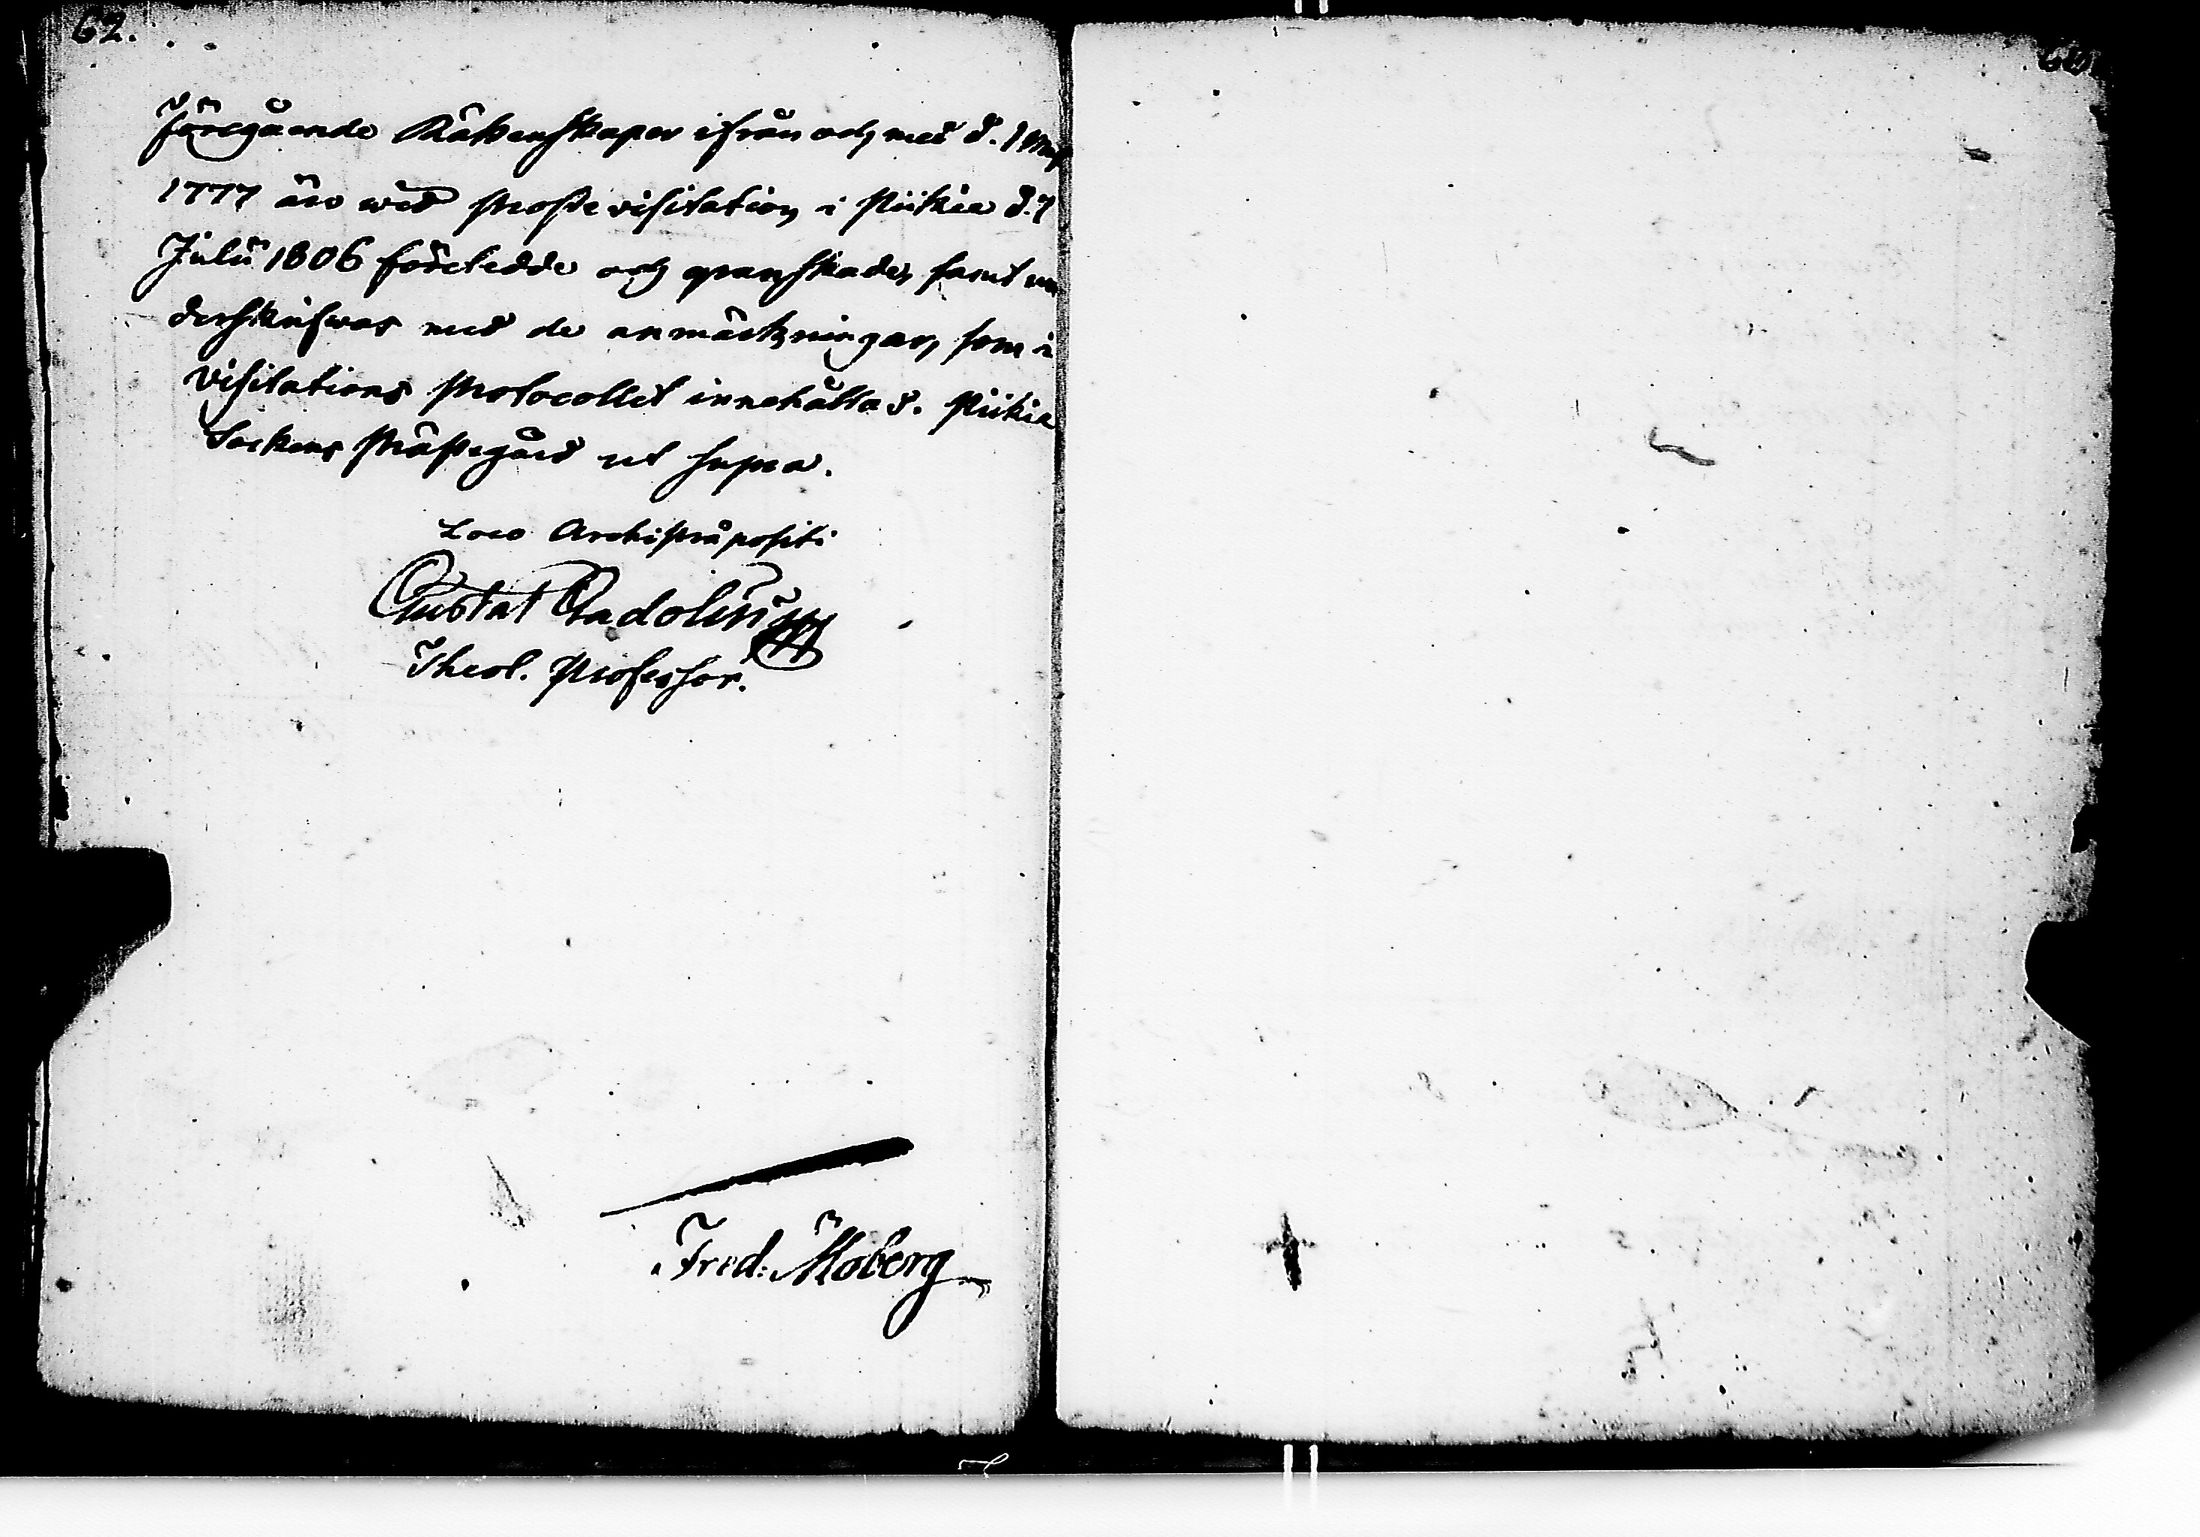 62.
Föregående Räkenskaper ifrån och med d. 1 Maji
1777 äro wid Proste visitation i Piikie d. 7
Julii 1806 företedde och granskade, samt un
derskrifwas med de anmärkningar, som i
Visitations Protocollet innehållas. Piikie
Sockens Prästegård ut supra.
Loco Archipräpositi
Gustaf Gadolin
Theol. Professor.
Fred: Moberg